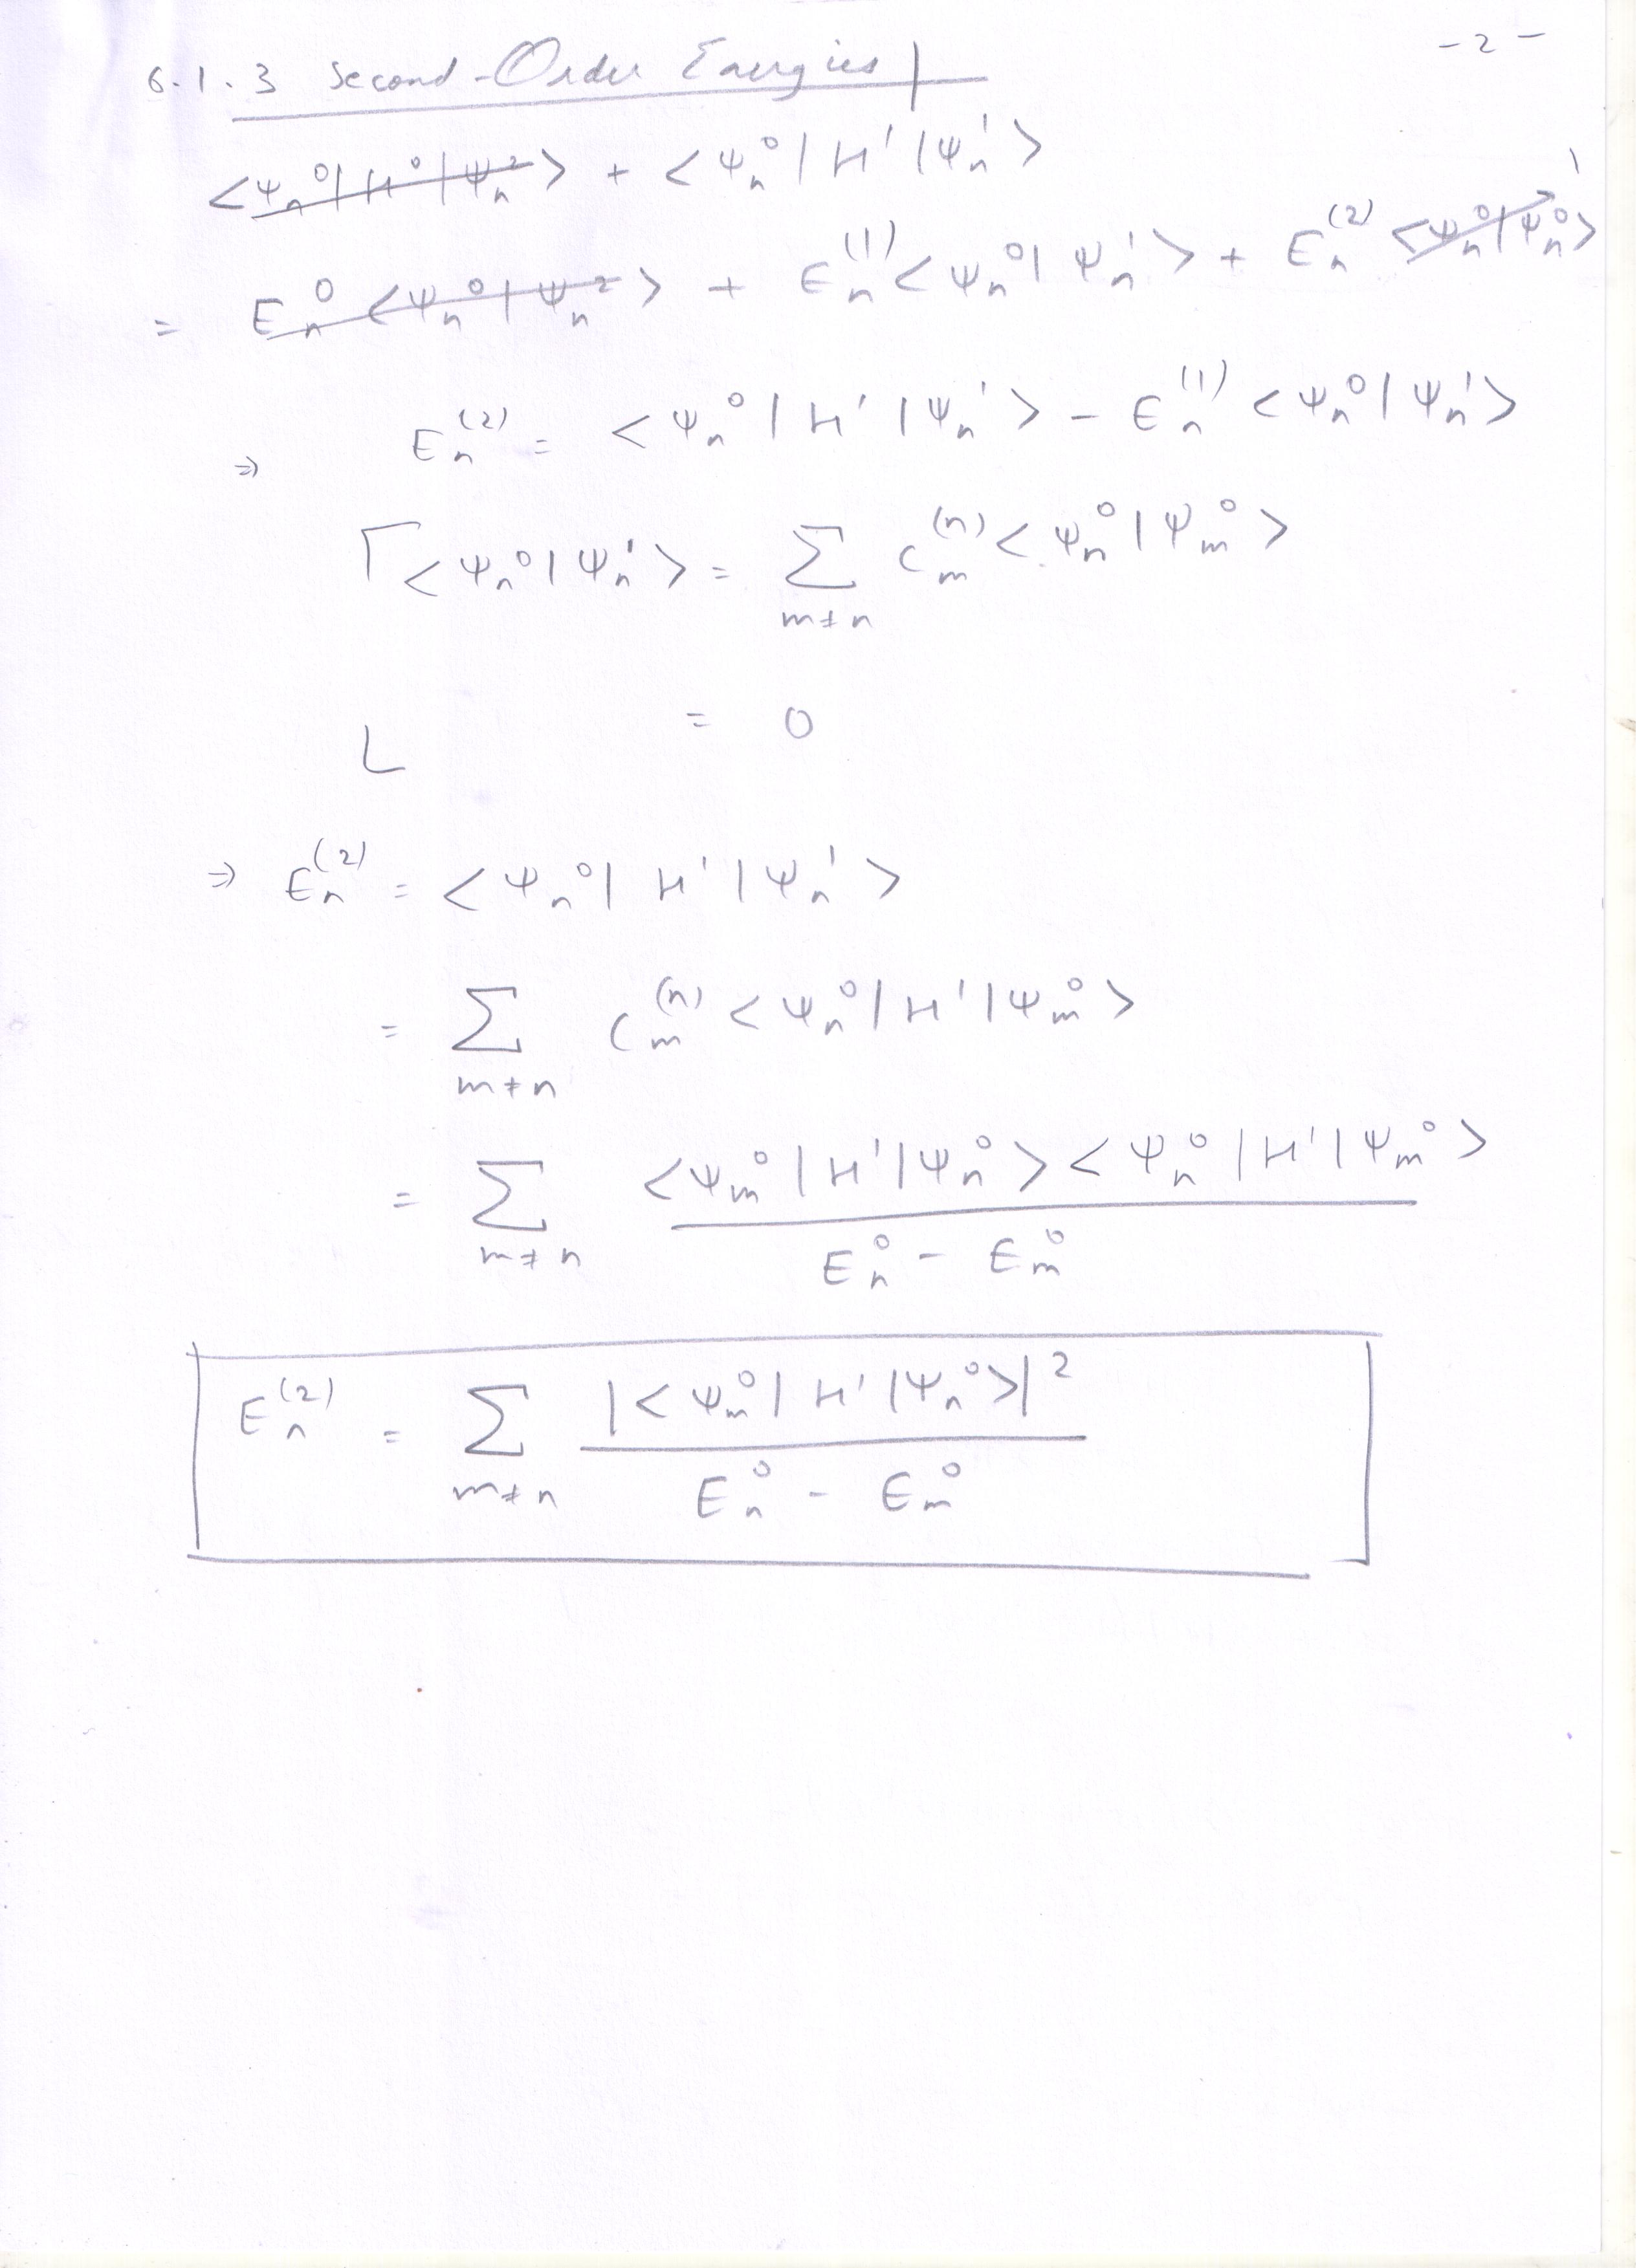 - 2 -
6.1.3 Second-Order Energies
<ψₙ⁰|H⁰|ψₙ²> + <ψₙ⁰|H'|ψₙ¹>
= Eₙ⁰ <ψₙ⁰|ψₙ²> + Eₙ⁽¹⁾ <ψₙ⁰|ψₙ¹> + Eₙ⁽²⁾ <ψₙ⁰|ψₙ⁰> 1
⇒ Eₙ⁽²⁾ = <ψₙ⁰|H'|ψₙ¹> - Eₙ⁽¹⁾ <ψₙ⁰|ψₙ¹>
⌈ <ψₙ⁰|ψₙ¹> = Σ_{m≠n} cₘ⁽ⁿ⁾ <ψₙ⁰|ψₘ⁰>
⌊ = 0
⇒ Eₙ⁽²⁾ = <ψₙ⁰|H'|ψₙ¹>
= Σ_{m≠n} cₘ⁽ⁿ⁾ <ψₙ⁰|H'|ψₘ⁰>
= Σ_{m≠n} <ψₘ⁰|H'|ψₙ⁰> <ψₙ⁰|H'|ψₘ⁰> / (Eₙ⁰ - Eₘ⁰)
Eₙ⁽²⁾ = Σ_{m≠n} |<ψₘ⁰|H'|ψₙ⁰>|² / (Eₙ⁰ - Eₘ⁰)